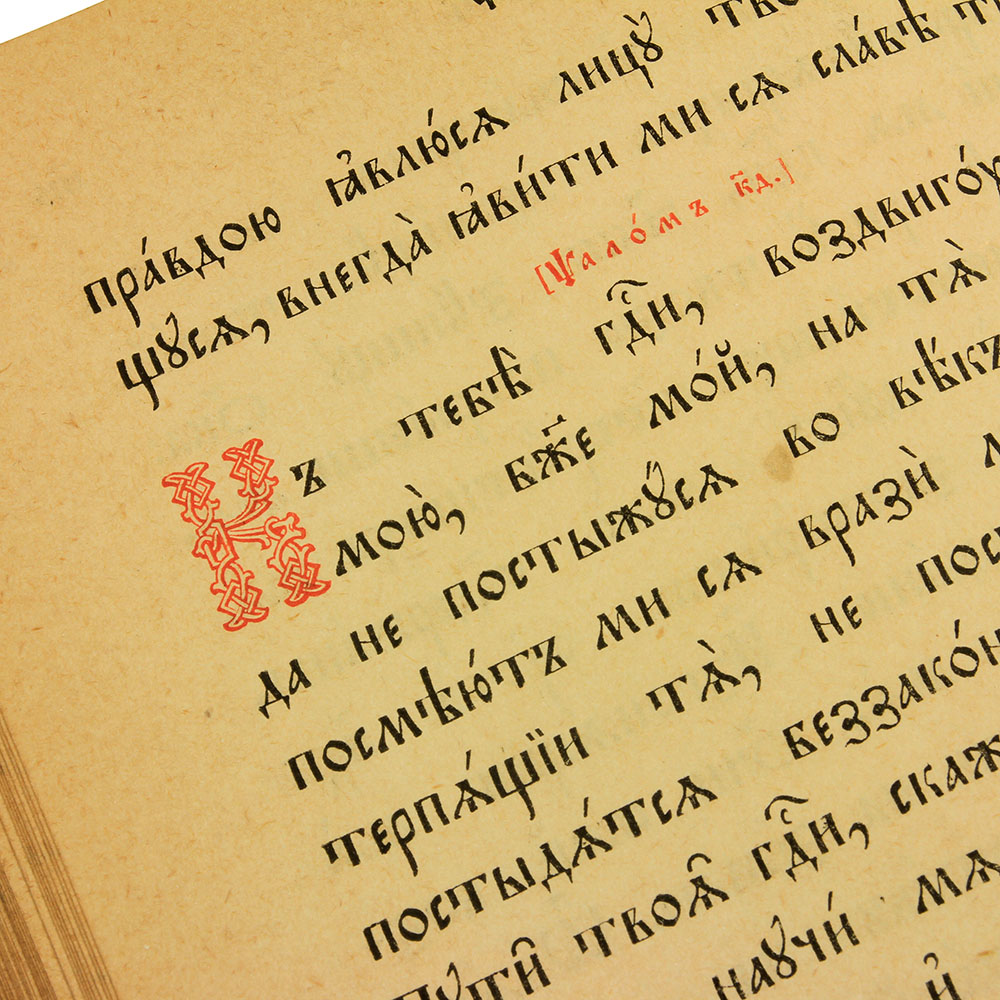 пра́вдою ꙗ҆влю́сѧ лицꙋ̀ тво
щꙋсѧ, внегда̀ ꙗ҆ви́ти ми сѧ сла́вѣ т
[Ѱало́мъ к҃д.]
Къ тебѣ̀ гдⷭ҇и, воздвиго́у
мою̀, бж҃е мо́й, на тѧ̀
да не постыжꙋ́сѧ во вѣ́къ
посмѣю́тъ ми сѧ вразѝ
терпѧ́щїи тѧ̀, не пос
постыдѧ́тсѧ беззако́н
пꙋти̑ твоѧ̑ гдⷭ҇и, скаж
наꙋчи́ мѧ
и҆